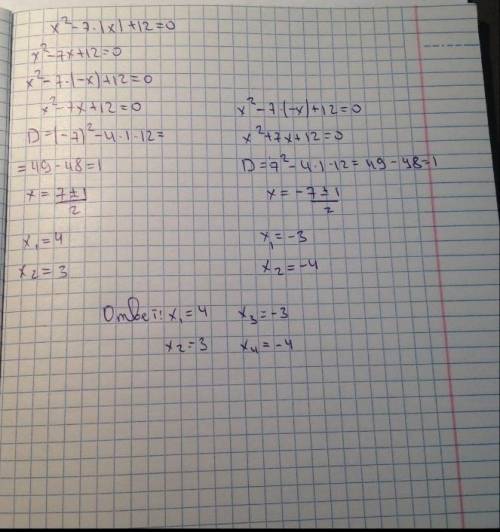 x²-7·|x|+12=0
x²-7x+12=0
x²-7·(-x)+12=0
x²-7x+12=0
D=(-7)²-4·1·12=
=49-48=1
x=7±1/2
x₁=4
x₂=3
x²-7·(-x)+12=0
x²+7x+12=0
D=7²-4·1·12=49-48=1
x=-7±1/2
x₁=-3
x₂=-4
Ответ: x₁=4 x₃=-3
x₂=3 x₄=-4